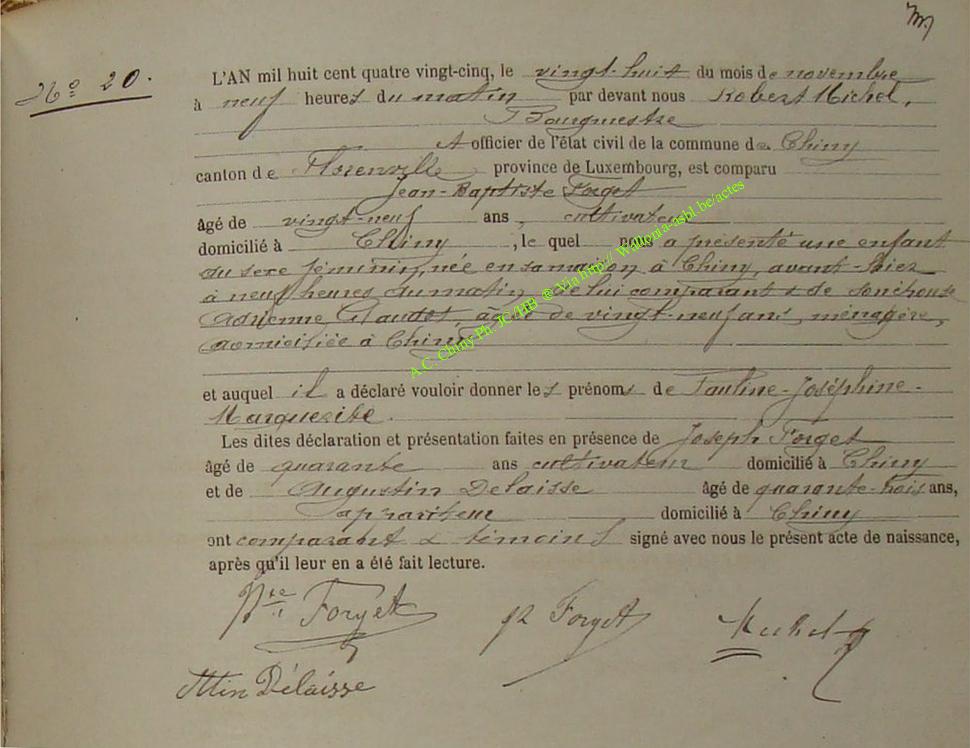 Nº 20.
L'AN mil huit cent quatre vingt-cinq, le vingt-huit du mois de novembre
à neuf heures du matin par devant nous Robert Michel,
Bourgmestre
officier de l'état civil de la commune de Chiny
canton de Florenville province de Luxembourg, est comparu
Jean-Baptiste Forget
âgé de vingt-neuf ans, cultivateur
domicilié à Chiny, le quel nous a présenté une enfant
du sexe féminin, née en sa maison à Chiny, avant-hier
à neuf heures du matin, de lui comparant & de son épouse
Adrienne Claudot, âgée de vingt-neuf ans, ménagère,
domiciliée à Chiny
et auquel il a déclaré vouloir donner les prénoms de Pauline-Joséphine-
Marguerite.
Les dites déclaration et présentation faites en présence de Joseph Forget
âgé de quarante ans cultivateur domicilié à Chiny
et de Augustin Delaisse âgé de quarante-trois ans,
appariteur domicilié à Chiny
ont comparant & témoins signé avec nous le présent acte de naissance,
après qu'il leur en a été fait lecture.
Forget Forget Michel
Délaisse
A.C. Chiny Ph. JC/HB @ Via http:// Wallonia-asbl.be/actes